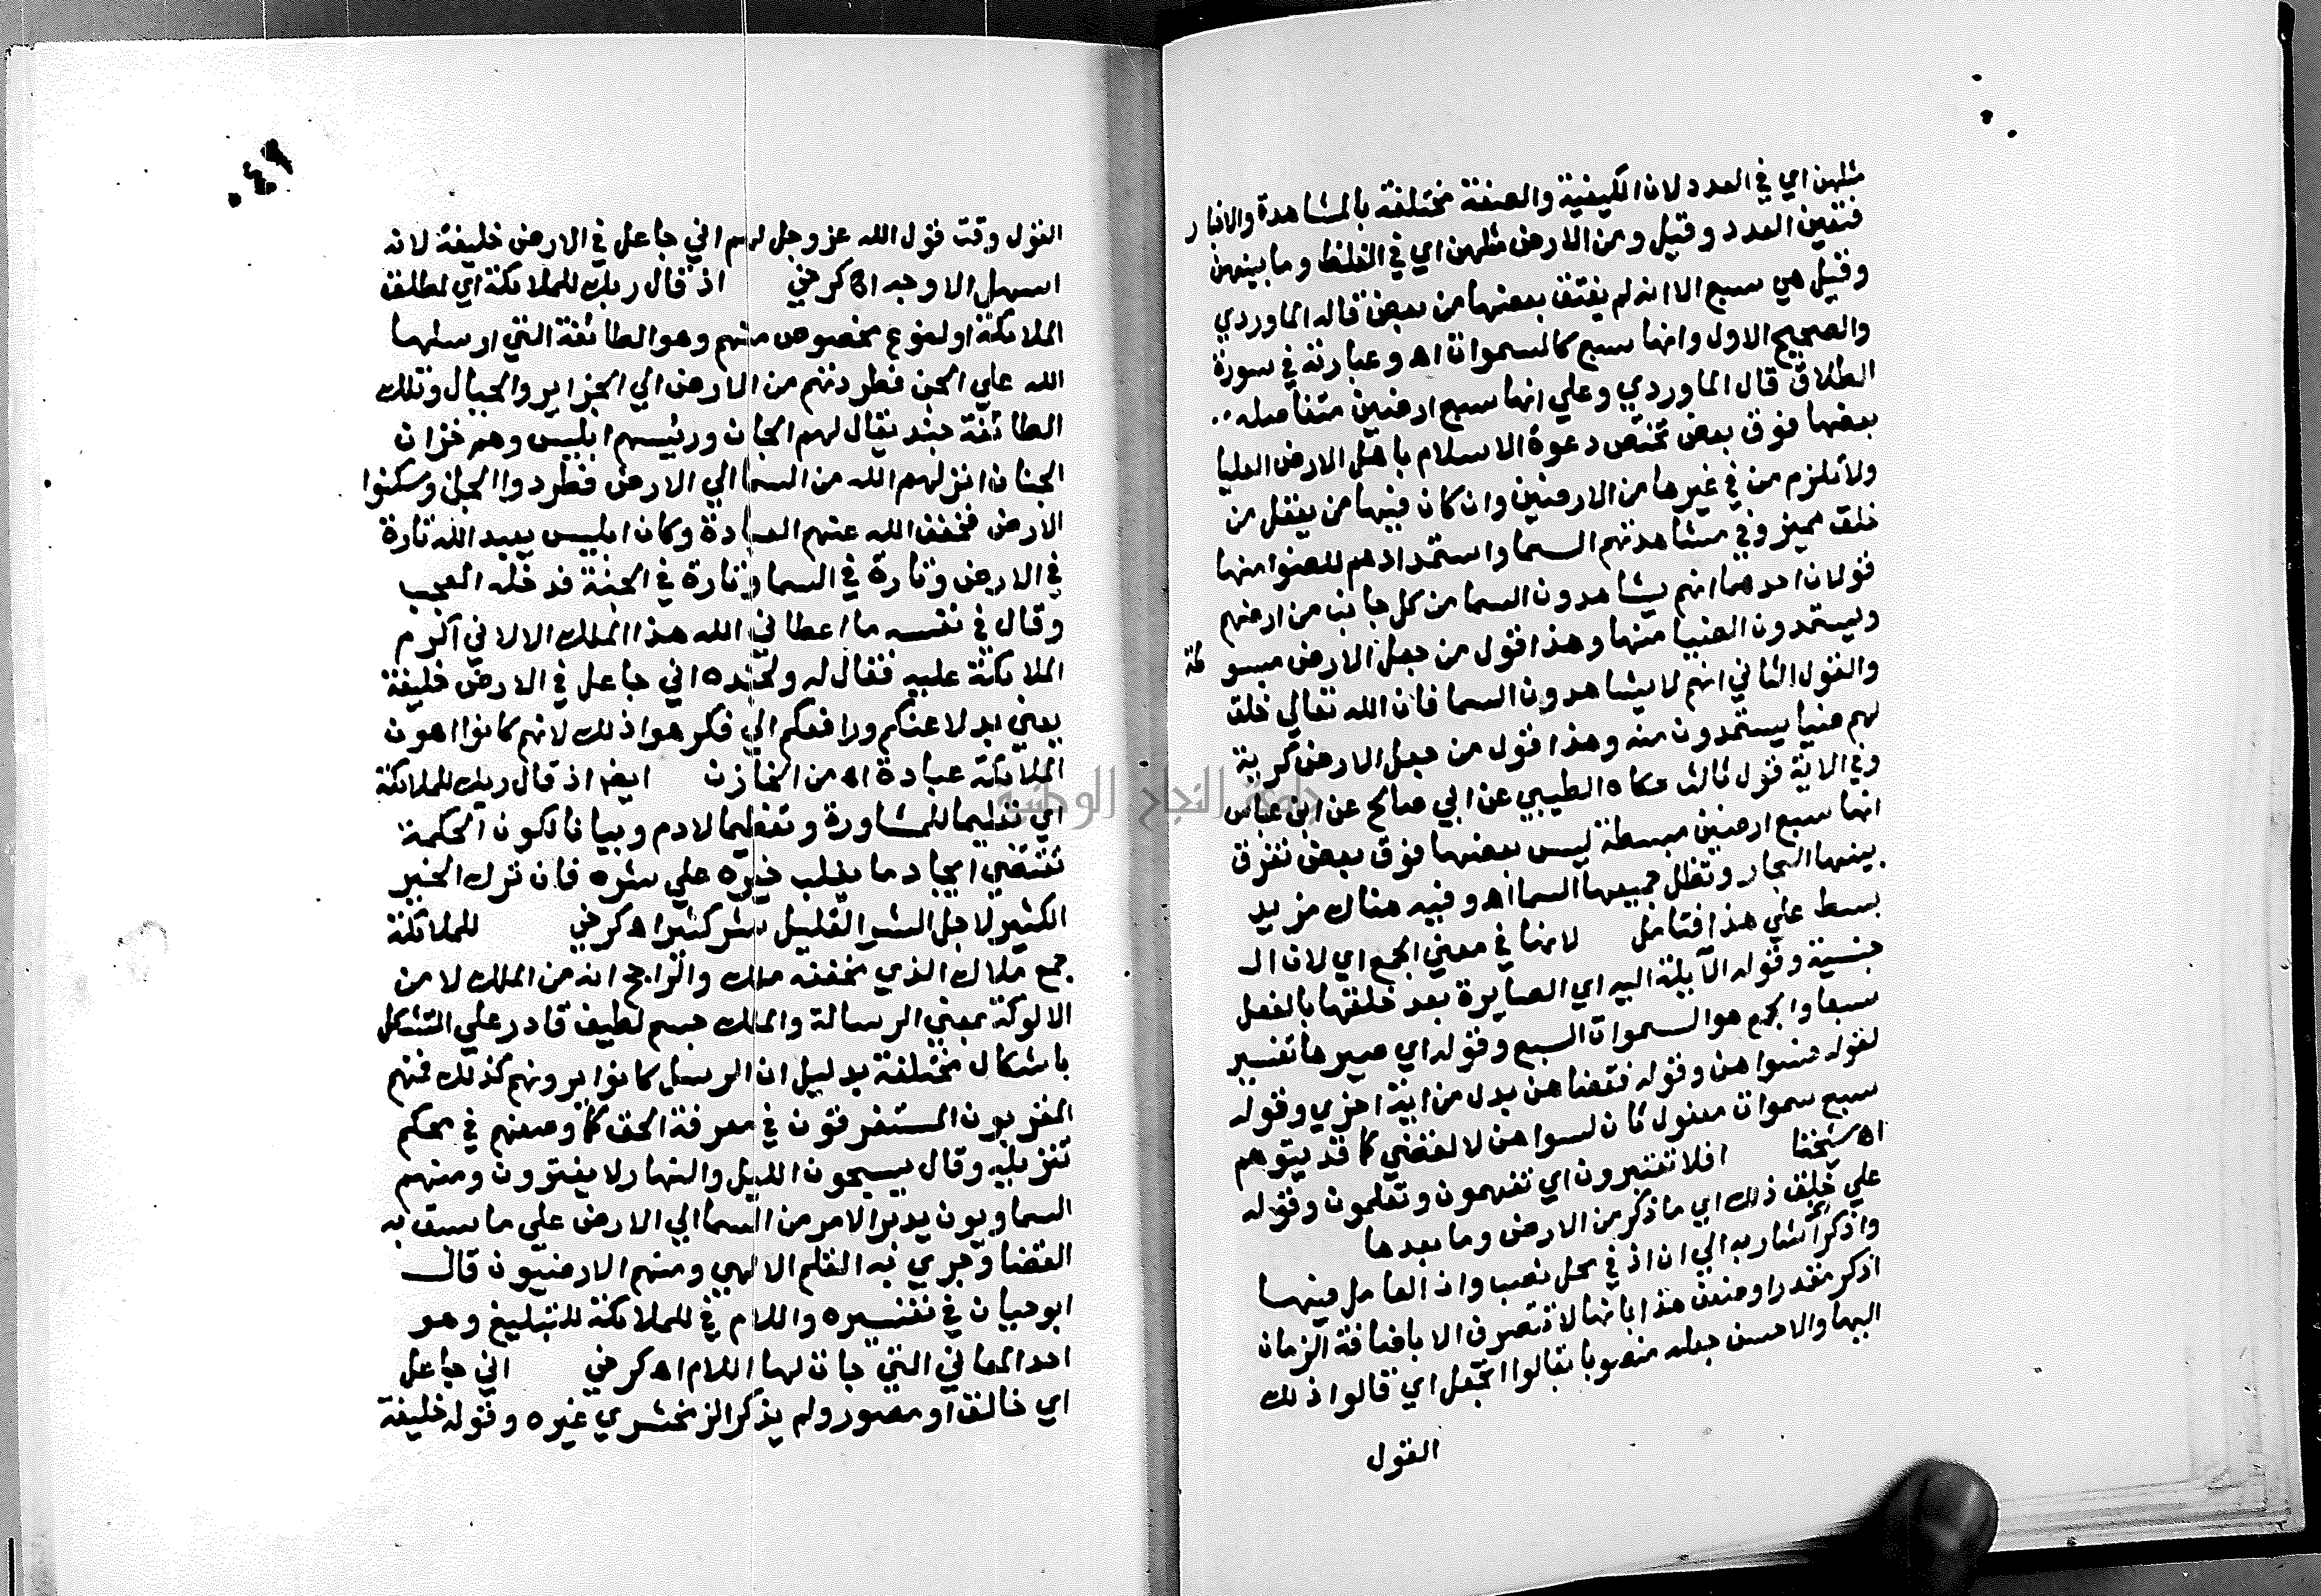 مثلهن اي في العدد لان الكيفية والصفة مختلفة بالمشاهدة والاخبار
فتعين العدد وقيل ومن الارض مثلهن اي في الغلظ وما بينهن
وقيل هي سبع الا انه لم يفتق بعضها من بعض قاله الماوردي
والصحيح الاول وانها سبع كالسموات اه وعبارته في سورة
الطلاق قال الماوردي وعلي انها سبع ارضين متفاصله
بعضها فوق بعض تختص دعوة الاسلام باهل الارض العليا
ولا تلزم من في غيرها من الارضين وان كان فيها من يعقل من
خلق مميز وفي مشاهدتهم السما واستمدادهم للضوا منها
قولان احدهما انهم يشاهدون السما من كل جانب من ارضهم
ويستمدون الضيا منها وهذا قول من جعل الارض مبسوطة
والقول الثاني انهم لا يشاهدون السما فان الله تعالي خلق
لهم ضيا يستمدون منه وهذا قول من جعل الارض كرية
وفي الاية قول ثالث حكاه الطيبي عن ابي صالح عن ابن عباس
انها سبع ارضين مبسطة ليس بعضها فوق بعض تفرق
بينها البحار وتظلل جميعها السما اه وفيه هناك مزيد
بسط علي هذا فتامل لانها في معني الجمع اي لان ال
جنسية وقوله الآيلة اليه اي الصايرة بعد خلقها بالفعل
سبعا والجمع هو السموات السبع وقوله اي صيرها تفسير
لقوله فسواهن وقوله فقضاهن بدل من اية اخري وقوله
سبع سموات مفعول ثان لسواهن لا لقضي كما قد يتوهم
اه شيخنا افلا تعتبرون اي تفهمون وتعلمون وقوله
علي خلق ذلك اي ما ذكر من الارض وما بعدها
واذكر اشار به الي ان اذ في محل نصب وان العامل فيها
اذكر مقدرا وضعف هذا بانها لا تتصرف الا باضافة الزمان
اليها والاحسن جعله منصوبا بقالوا اتجعل اي قالوا ذلك
القول
القول وقت قول الله عز وجل لهم اني جاعل في الارض خليفة لانه
اسهل الاوجه اه كرخي اذ قال ربك للملائكة اي لمطلق
الملائكة او لنوع مخصوص منهم وهو الطائفة التي ارسلها
الله علي الجن فطردتهم من الارض الي الجزاير والجبال وتلك
الطائفة جند يقال لهم الجان ورئيسهم ابليس وهم خزان
الجنان انزلهم الله من السما الي الارض فطردوا الجن وسكنوا
الارض فخفف الله عنهم العبادة وكان ابليس يعبد الله تارة
في الارض وتارة في السما وتارة في الجنة فدخله العجب
وقال في نفسه ما اعطاني الله هذا الملك الا لاني اكرم
الملائكة عليه فقال له ولجنده اني جاعل في الارض خليفة
يعني بدلا عنكم ورافعكم الي فكرهوا ذلك لانهم كانوا اهون
الملائكة عبادة اه من الخازن ايضا اذ قال ربك للملائكة
اي تعليما للمشاورة وتعظيما لادم وبيانا لكون الحكمة
تقتضي ايجاد ما يغلب خيره علي شره فان ترك الخير
الكثير لاجل الشر القليل شر كثير اه كرخي للملائكة
جمع ملاك الذي مخففه ملك والراجح انه من الملك لا من
الالوكة بمعني الرسالة والملك جسم لطيف قادر علي التشكل
باشكال مختلفة بدليل ان الرسل كانوا يرونهم كذلك فمنهم
المقربون المستغرقون في معرفة الحق كما وصفهم في محكم
تنزيله وقال يسبحون الليل والنهار لا يفترون ومنهم
السماويون يدبر الامر من السما الي الارض علي ما سبق به
القضا وجري به القلم الالهي ومنهم الارضيون قال
ابو حيان في تفسيره واللام في للملائكة للتبليغ وهو
احد المعاني التي جات لها اللام اه كرخي اني جاعل
اي خالق او مصور ولم يذكر الزمخشري غيره وقوله خليفة
جامعة النجاح الوطنية